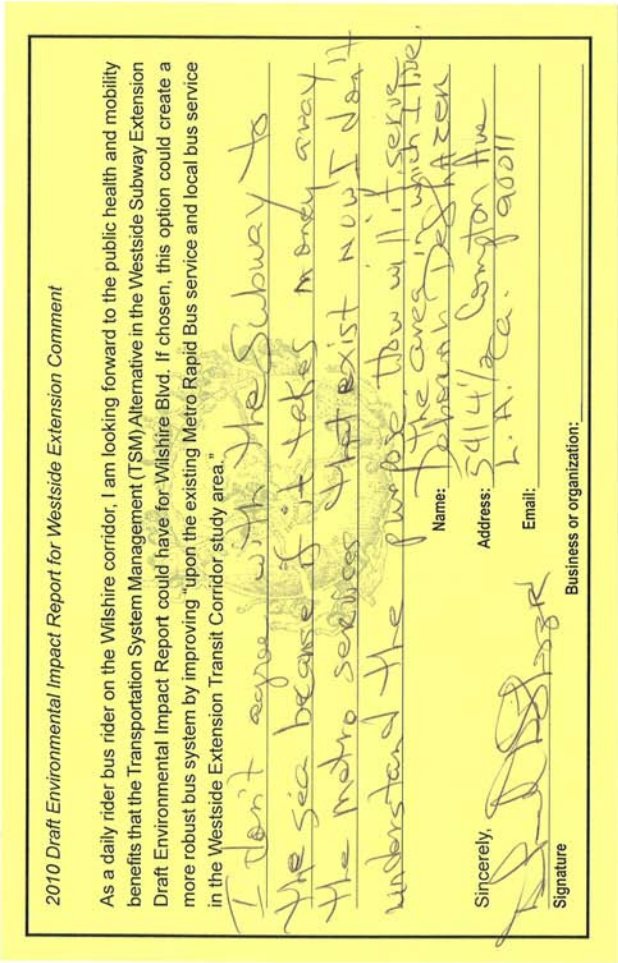 2010 Draft Environmental Impact Report for Westside Extension Comment
As a daily rider bus rider on the Wilshire corridor, I am looking forward to the public health and mobility
benefits that the Transportation System Management (TSM) Alternative in the Westside Subway Extension
Draft Environmental Impact Report could have for Wilshire Blvd. If chosen, this option could create a
more robust bus system by improving "upon the existing Metro Rapid Bus service and local bus service
in the Westside Extension Transit Corridor study area."
I don't agree with the Subway to
the sea because if it takes money away
the metro services that exist now I don't
understand the purpose how will it serve
the area in which I live.
Sincerely,
Name: Deborah
Address: 5414 1/2 Compton Ave
L.A. Ca. 90011
Email:
Signature
Business or organization: